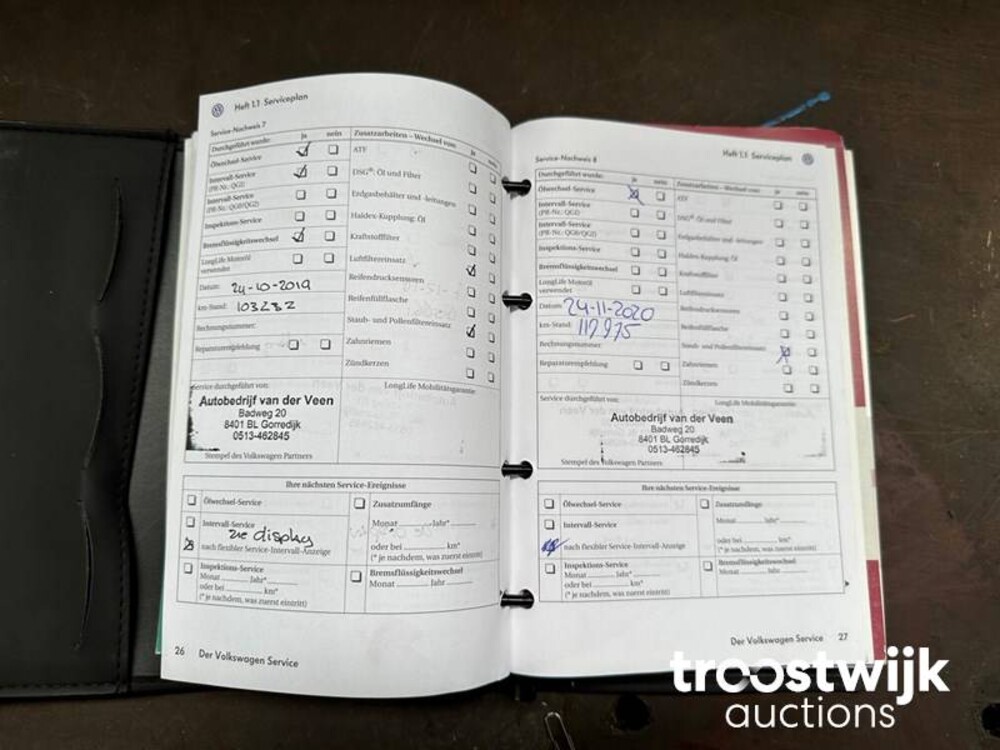 Heft 1.1 Serviceplan
Service-Nachweis 7
Durchgeführt wurde: ja nein
Ölwechsel-Service
Intervall-Service
(PR-Nr.: QG1)
Intervall-Service
(PR-Nr.: QG0/QG2)
Inspektions-Service
Bremsflüssigkeitswechsel
LongLife Motoröl
verwendet
Datum: 24-10-2019
km-Stand: 103232
Rechnungsnummer:
Reparaturempfehlung
Zusatzarbeiten – Wechsel von: ja nein
ATF
DSG®: Öl und Filter
Erdgasbehälter und -leitungen
Haldex-Kupplung: Öl
Kraftstofffilter
Luftfiltereinsatz
Reifendrucksensoren
Reifenfüllflasche
Staub- und Pollenfiltereinsatz
Zahnriemen
Zündkerzen
Service durchgeführt von:
LongLife Mobilitätsgarantie
Autobedrijf van der Veen
Badweg 20
8401 BL Gorredijk
0513-462845
Stempel des Volkswagen Partners
Ihre nächsten Service-Ereignisse
Ölwechsel-Service
Intervall-Service
zie display
nach flexibler Service-Intervall-Anzeige
Inspektions-Service
Monat Jahr*
oder bei km*
(* je nachdem, was zuerst eintritt)
Zusatzumfänge
Monat Jahr*
oder bei km*
(* je nachdem, was zuerst eintritt)
Bremsflüssigkeitswechsel
Monat Jahr
26 Der Volkswagen Service
Heft 1.1 Serviceplan
Service-Nachweis 8
Durchgeführt wurde: ja nein
Ölwechsel-Service
Intervall-Service
(PR-Nr.: QG1)
Intervall-Service
(PR-Nr.: QG0/QG2)
Inspektions-Service
Bremsflüssigkeitswechsel
LongLife Motoröl
verwendet
Datum: 24-11-2020
km-Stand: 117975
Rechnungsnummer:
Reparaturempfehlung
Zusatzarbeiten – Wechsel von: ja nein
ATF
DSG®: Öl und Filter
Erdgasbehälter und -leitungen
Haldex-Kupplung: Öl
Kraftstofffilter
Luftfiltereinsatz
Reifendrucksensoren
Reifenfüllflasche
Staub- und Pollenfiltereinsatz
Zahnriemen
Zündkerzen
Service durchgeführt von:
LongLife Mobilitätsgarantie
Autobedrijf van der Veen
Badweg 20
8401 BL Gorredijk
0513-462845
Stempel des Volkswagen Partners
Ihre nächsten Service-Ereignisse
Ölwechsel-Service
Intervall-Service
nach flexibler Service-Intervall-Anzeige
Inspektions-Service
Monat Jahr*
oder bei km*
(* je nachdem, was zuerst eintritt)
Zusatzumfänge
Monat Jahr*
oder bei km*
(* je nachdem, was zuerst eintritt)
Bremsflüssigkeitswechsel
Monat Jahr
Der Volkswagen Service 27
troostwijk
auctions